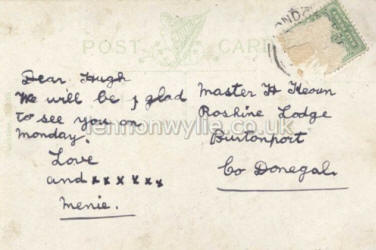 POST CARD
Dear Hugh
We will be glad
to see you on
Monday.
Love
and x x x x x x
Menie.
Master H Keown
Roshine Lodge
Burtonport
Co Donegal.
lennonwylie.co.uk